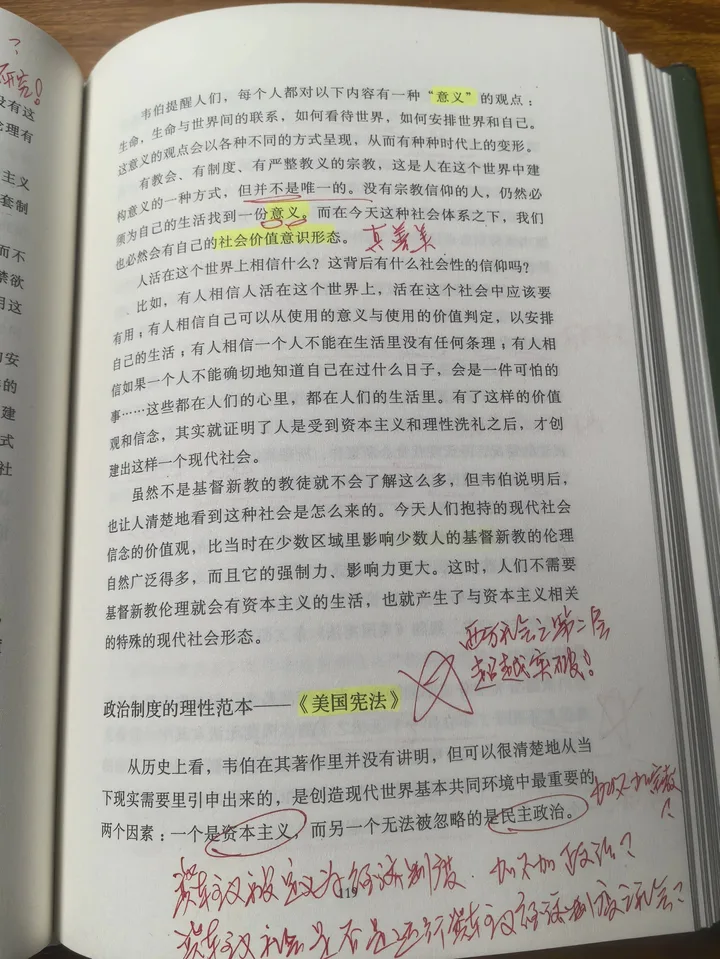 ？
研究！
没有这
伦理有
主义
套制
而不
禁欲
用这
的安
的
建
式
社
韦伯提醒人们，每个人都对以下内容有一种“意义”的观点：
生命，生命与世间的联系，如何看待世界，如何安排世界和自己。
这意义的观点会以各种不同的方式呈现，从而有种种时代上的变形。
有教会、有制度、有严整教义的宗教，这是人在这个世界中建
构意义的一种方式，但并不是唯一的。没有宗教信仰的人，仍然必
须为自己的生活找到一份意义。而在今天这种社会体系之下，我们
也必然会有自己的社会价值意识形态。 真善美
人活在这个世界上相信什么？这背后有什么社会性的信仰吗？
比如，有人相信人活在这个世界上，活在这个社会中应该要
有用；有人相信自己可以从使用的意义与使用的价值判定，以安排
自己的生活；有人相信一个人不能在生活里没有任何条理；有人相
信如果一个人不能确切地知道自己在过什么日子，会是一件可怕的
事……这些都在人们的心里，都在人们的生活里。有了这样的价值
观和信念，其实就证明了人是受到资本主义和理性洗礼之后，才创
建出这样一个现代社会。
虽然不是基督新教的教徒就不会了解这么多，但韦伯说明后，
也让人清楚地看到这种社会是怎么来的。今天人们抱持的现代社会
信念的价值观，比当时在少数区域里影响少数人的基督新教的伦理
自然广泛得多，而且它的强制力、影响力更大。这时，人们不需要
基督新教伦理就会有资本主义的生活，也就产生了与资本主义相关
的特殊的现代社会形态。
西方社会之第二层
超越突破！
政治制度的理性范本——《美国宪法》
从历史上看，韦伯在其著作里并没有讲明，但可以很清楚地从当
下现实需要里引申出来的，是创造现代世界基本共同环境中最重要的
两个因素：一个是资本主义，而另一个无法被忽略的是民主政治。
加不加宗教
？
资本主义被定义为经济制度．加不加政治？
119
资本主义社会是否是还行资本主义经济制度之社会？